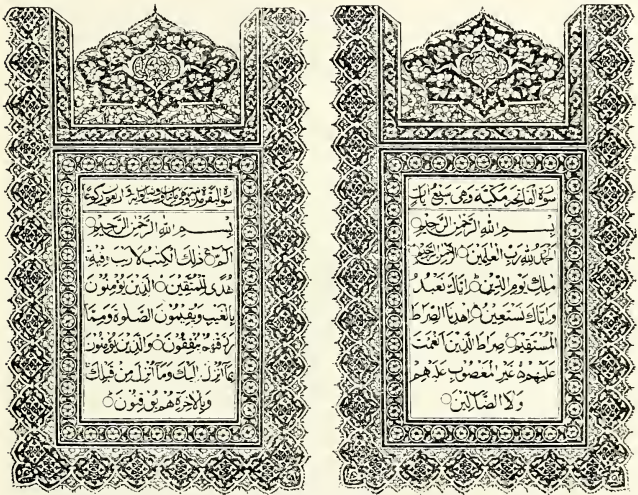 سورة الفاتحة مكية وهى سبع ايات
بِسْمِ اللهِ الرَّحْمٰنِ الرَّحِيْمِ
اَلْحَمْدُ لِلّٰهِ رَبِّ الْعٰلَمِيْنَ الرَّحْمٰنِ الرَّحِيْمِ
مٰلِكِ يَوْمِ الدِّيْنِ اِيَّاكَ نَعْبُدُ
وَاِيَّاكَ نَسْتَعِيْنُ اِهْدِنَا الصِّرٰطَ
الْمُسْتَقِيْمَ صِرٰطَ الَّذِيْنَ اَنْعَمْتَ
عَلَيْهِمْ غَيْرِ الْمَغْضُوْبِ عَلَيْهِمْ
وَلَا الضَّآلِّيْنَ
سورة البقرة
بِسْمِ اللهِ الرَّحْمٰنِ الرَّحِيْمِ
الٓمّٓ ذٰلِكَ الْكِتٰبُ لَا رَيْبَ فِيْهِ
هُدًى لِلْمُتَّقِيْنَ الَّذِيْنَ يُؤْمِنُوْنَ
بِالْغَيْبِ وَيُقِيْمُوْنَ الصَّلٰوةَ وَمِمَّا
رَزَقْنٰهُمْ يُنْفِقُوْنَ وَالَّذِيْنَ يُؤْمِنُوْنَ
بِمَا اُنْزِلَ اِلَيْكَ وَمَا اُنْزِلَ مِنْ قَبْلِكَ
وَبِالْاٰخِرَةِ هُمْ يُوْقِنُوْنَ